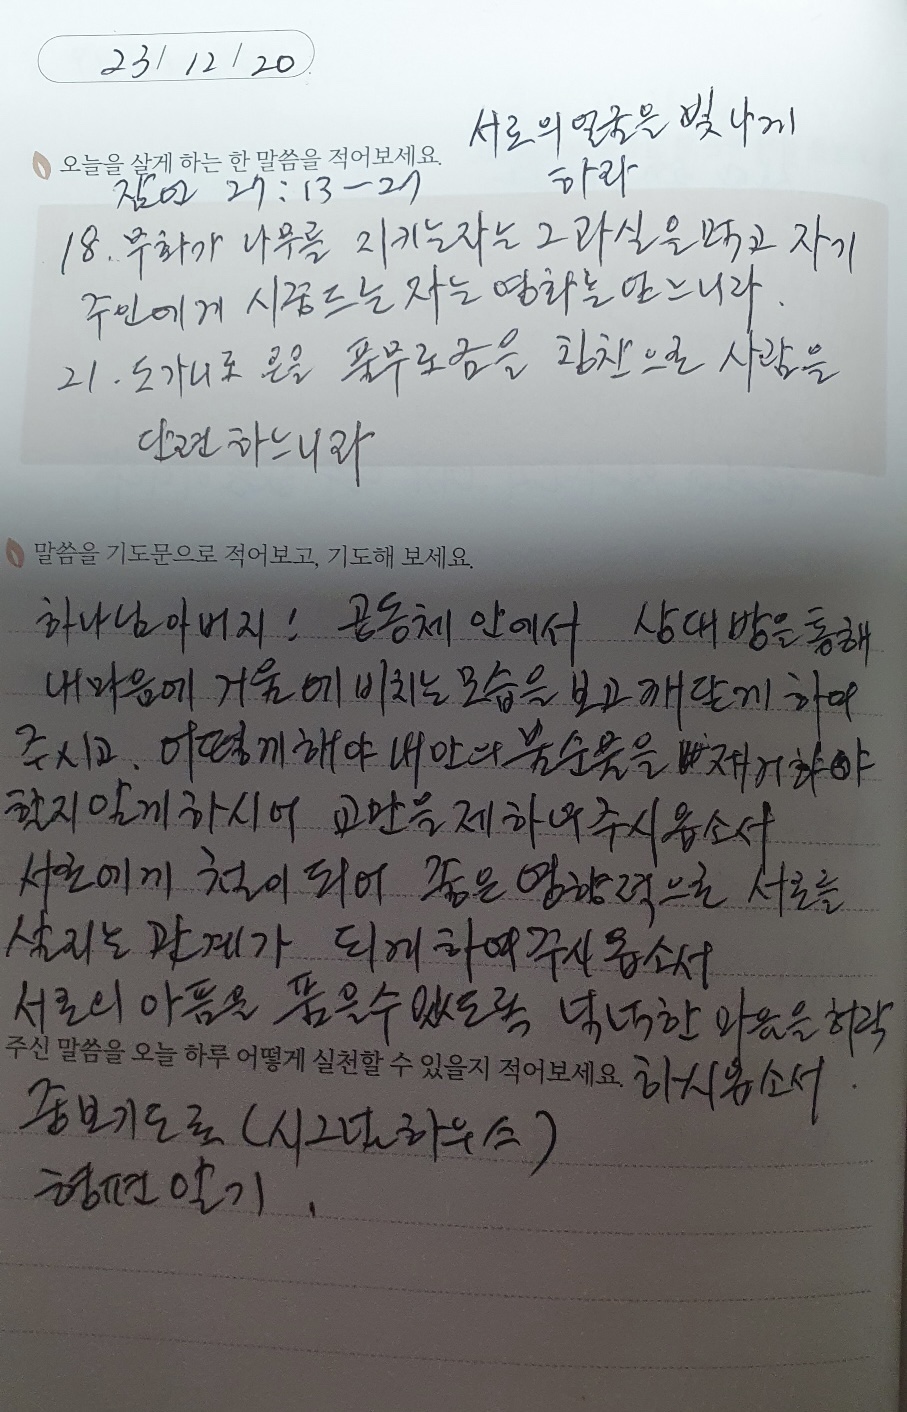 23/12/20
서로의 얼굴을 빛나게
하라
오늘을 살게 하는 한 말씀을 적어보세요.
잠언 27:13-27
18. 무화가 나무를 지키는자는 그 과실을 먹고 자기
주인에게 시중드는 자는 영화를 얻느니라.
21. 도가니로 은을 풀무로 금을 칭찬으로 사람을
단련하느니라
말씀을 기도문으로 적어보고, 기도해 보세요.
하나님아버지! 공동체 안에서 상대방을 통해
내마음에 거울에 비치는 모습을 보고 깨닫게 하여
주시고, 어떻게해야 내안의 불순물을 제거하야
할지 알게하시어 교만을 제하여주시옵소서
서로에게 철이 되어 좋은 영향력으로 서로를
살리는 관계가 되게하여주시옵소서
서로의 아픔을 품을수 있도록 넉넉한 마음을 허락
하시옵소서.
주신 말씀을 오늘 하루 어떻게 실천할 수 있을지 적어보세요.
중보기도로 (시그널하우스)
형편 알기.